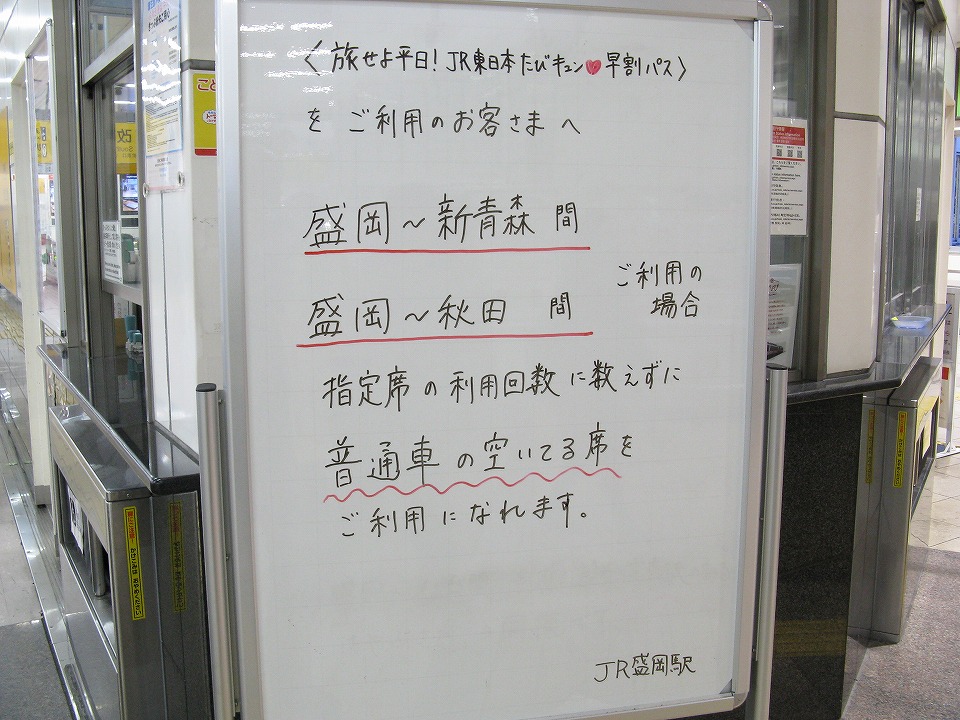 〈旅せよ平日！JR東日本たびキュン♥早割パス〉
をご利用のお客さまへ
盛岡〜新青森 間
盛岡〜秋田 間
ご利用の
場合
指定席の利用回数に数えずに
普通車の空いてる席を
ご利用になれます。
JR盛岡駅